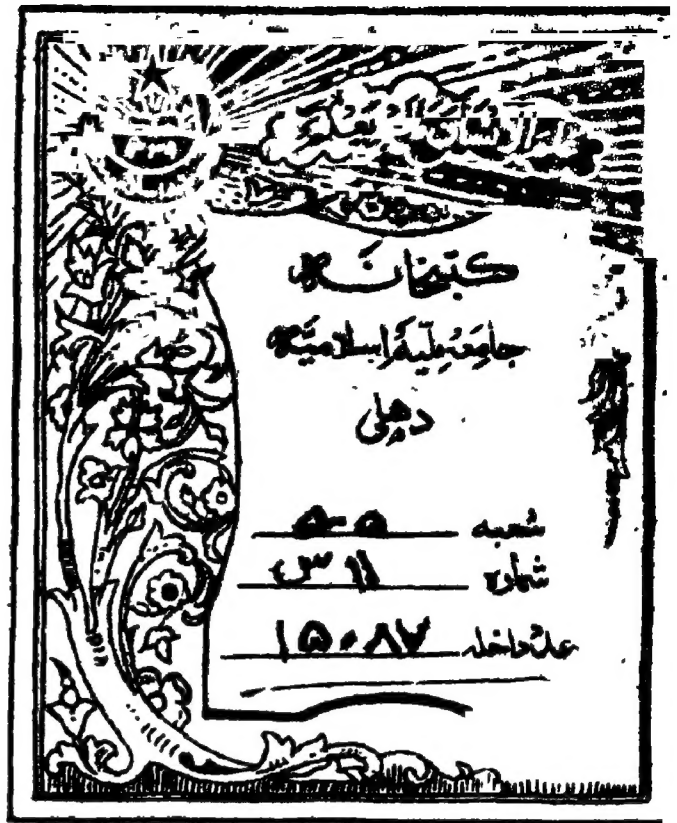 علم الانسان ما لم يعلم
کتبخانہ
جامعہ ملیہ اسلامیہ
دھلی
شعبہ ۵۰۵
شمارہ ۱۱ س
داخلہ ۱۵۰۸۷